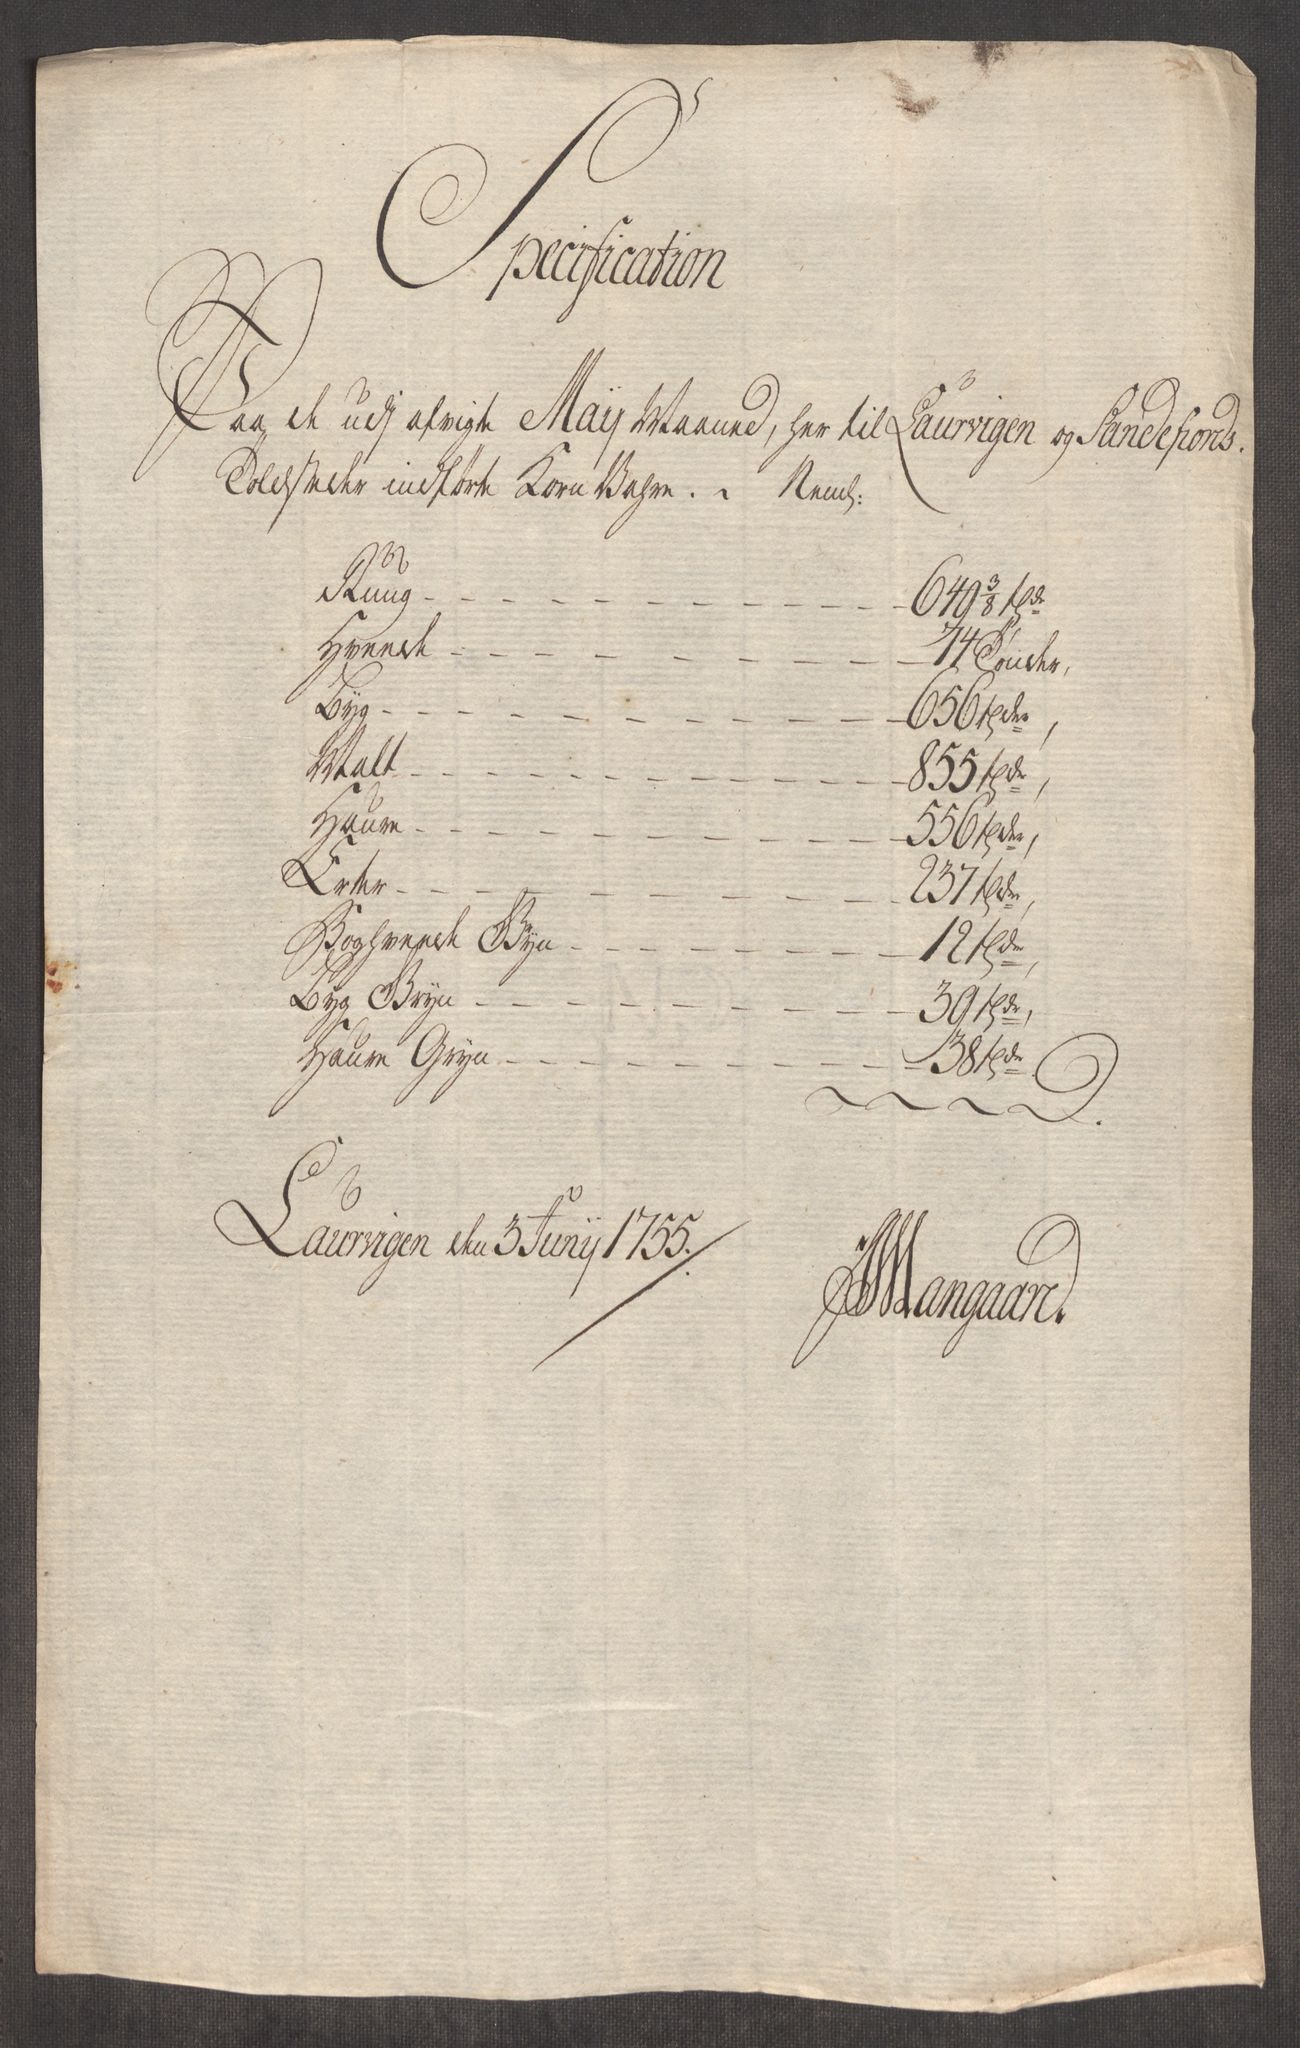 Specification
Paa de udj afvigte Maij Maaned, her til Laurvigen og Sandefiords.
Toldsteder indførte Korn Vahre. Neml:
Rüug - - - 649 3/8 tde
Hveede - - - 74 Tønder,
Byg - - - 656 tder,
Malt - - - 855 tdr,
Haure - - - 556 tder,
Erter - - - 237 tdr,
Boghveede Gryn - - - 12 tdr,
Byg Gryn - - - 39 tdr,
Haure Gryn - - - 38 tdr
Laurvigen den 3 Junij 1755.
Mangaard.